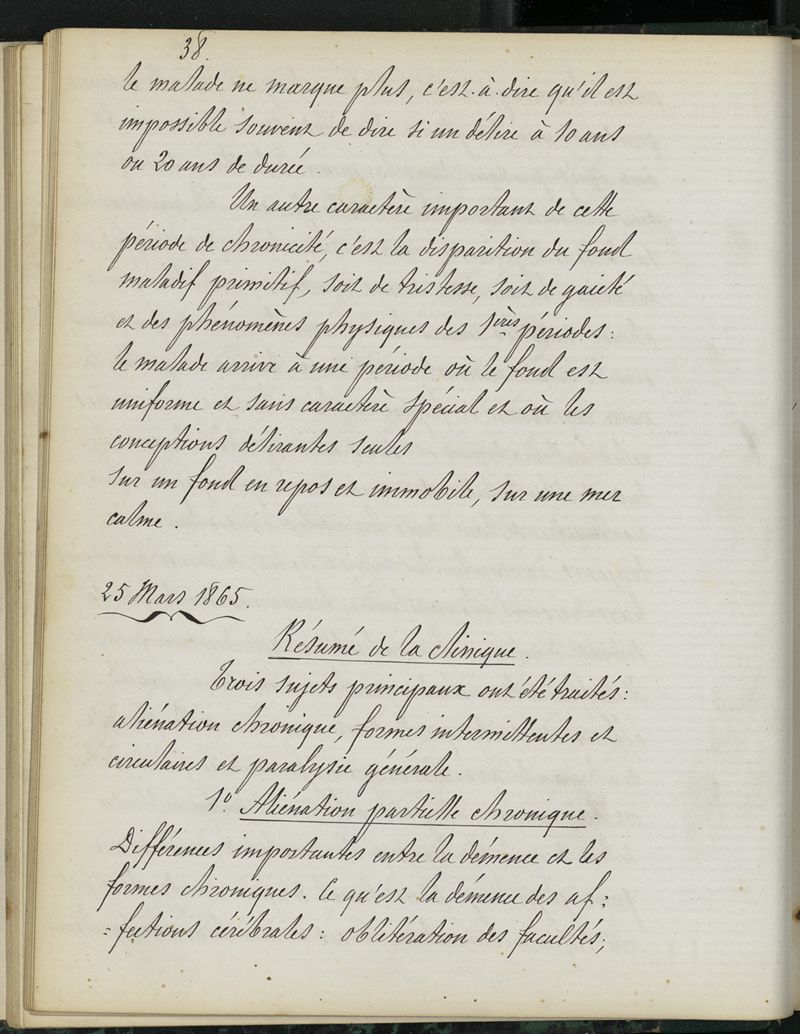 38.
le malade ne marque plus, c'est-à-dire qu'il est
impossible souvent de dire si un délire à 10 ans
ou 20 ans de durée.
Un autre caractère important de cette
période de chronicité, c'est la disparition du fond
maladif primitif, soit de tristesse, soit de gaieté
et des phénomènes physiques des 1ères périodes :
le malade arrive à une période où le fond est
uniforme et sans caractère spécial et où les
conceptions délirantes seules
sur un fond en repos et immobile, sur une mer
calme.
25 Mars 1865.
Résumé de la clinique.
Trois sujets principaux ont été traités :
aliénation chronique, formes intermittentes et
circulaires et paralysie générale.
1° Aliénation partielle chronique.
Différences importantes entre la démence et les
formes chroniques. Ce qu'est la démence des af=
=fections cérébrales : oblitération des facultés;